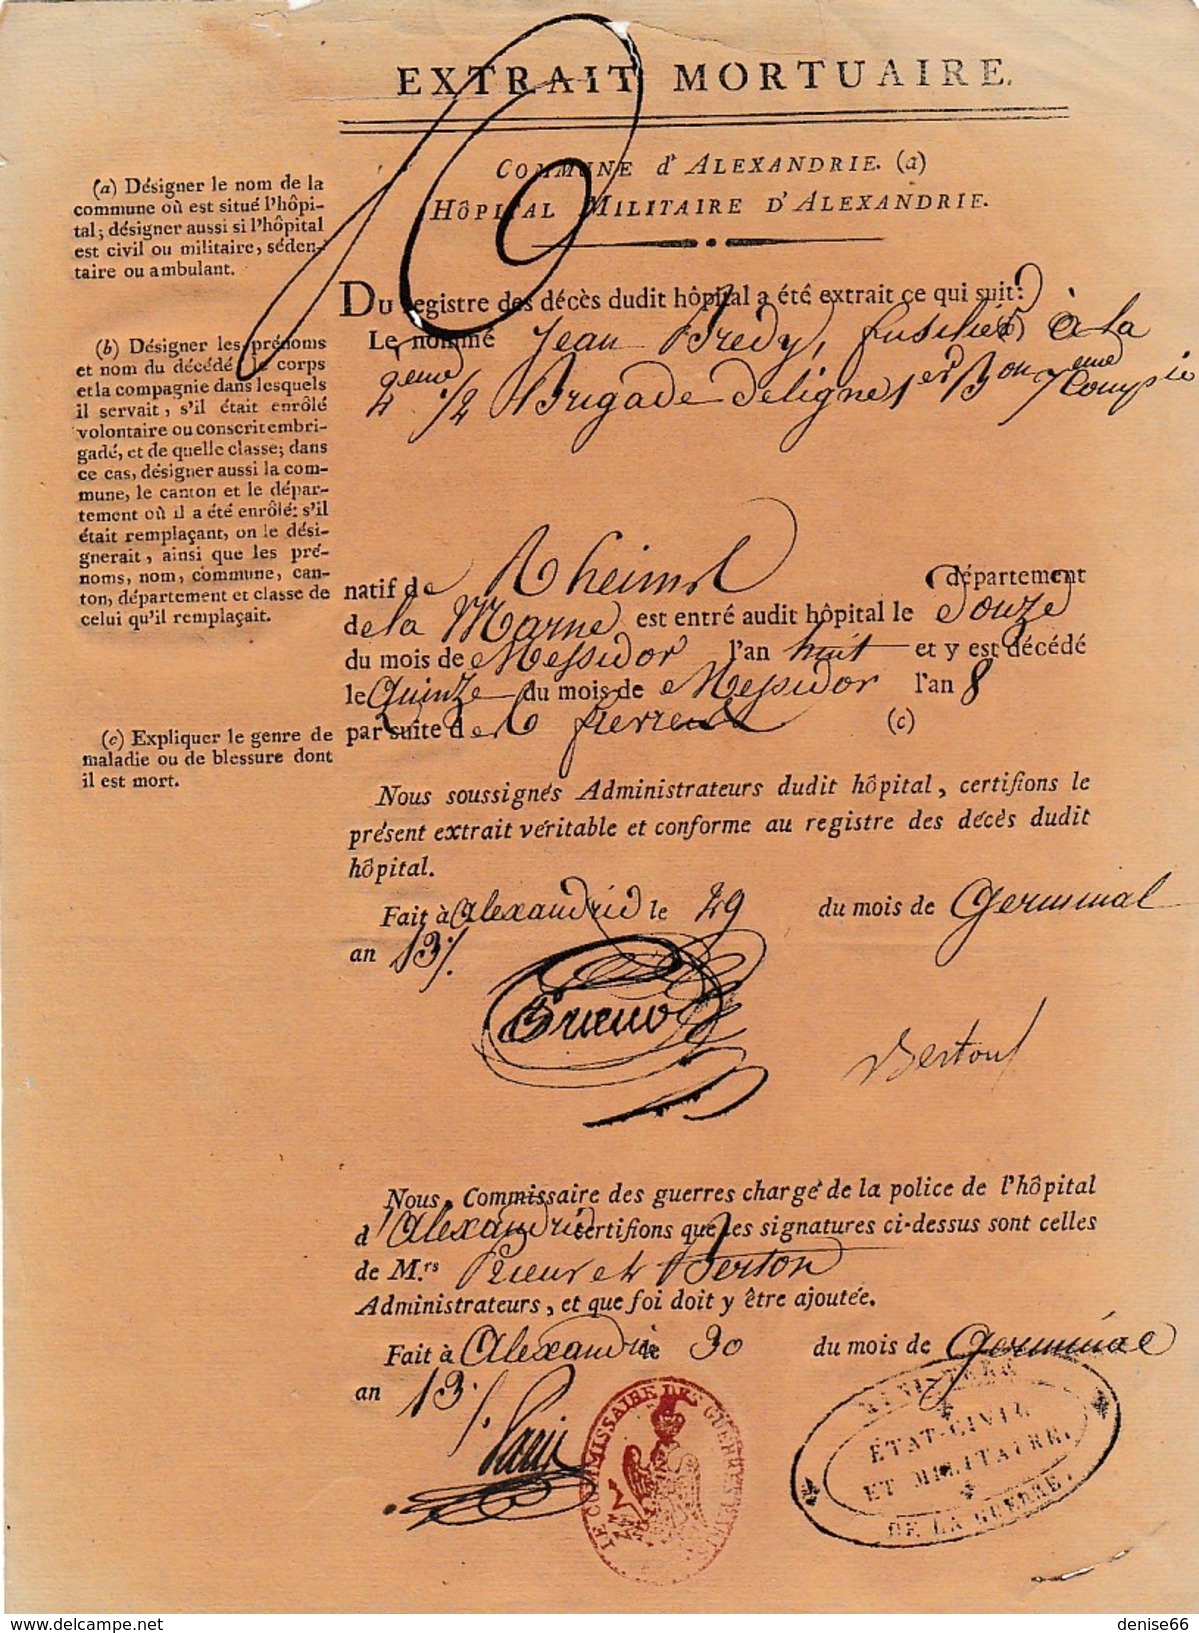 EXTRAIT MORTUAIRE.
COMMUNE d'ALEXANDRIE. (a)
HÔPITAL MILITAIRE D'ALEXANDRIE.
(a) Désigner le nom de la
commune où est situé l'hôpi-
tal; désigner aussi si l'hôpital
est civil ou militaire, séden-
taire ou ambulant.
DU registre des décès dudit hôpital a été extrait ce qui suit:
Le nommé Jean Bredy, fusilier à la
2eme 1/2 Brigade de ligne 1er Bon 7eme Compie
(b) Désigner les prénoms
et nom du décédé, le corps
et la compagnie dans lesquels
il servait, s'il était enrôlé
volontaire ou conscrit embri-
gadé, et de quelle classe; dans
ce cas, désigner aussi la com-
mune, le canton et le dépar-
tement où il a été enrôlé: s'il
était remplaçant, on le dési-
gnerait, ainsi que les pré-
noms, nom, commune, can-
ton, département et classe de
celui qu'il remplaçait.
natif de département
de la Marne est entré audit hôpital le Douze
du mois de Messidor l'an huit et y est décédé
le Quinze du mois de Messidor l'an 8
par suite de (c)
(c) Expliquer le genre de
maladie ou de blessure dont
il est mort.
Nous soussignés Administrateurs dudit hôpital, certifions le
présent extrait véritable et conforme au registre des décès dudit
hôpital.
Fait à Alexandrie le 29 du mois de Germinal
an 13/.
Berton
Nous, Commissaire des guerres chargé de la police de l'hôpital
d'Alexandrie certifions que les signatures ci-dessus sont celles
de M.rs et Berton
Administrateurs, et que foi doit y être ajoutée.
Fait à Alexandrie le 30 du mois de Germinal
an 13/.
LE COMMISSAIRE DES GUERRES
MINISTERE
ÉTAT-CIVIL
ET MILITAIRE.
DE LA GUERRE.
denise66